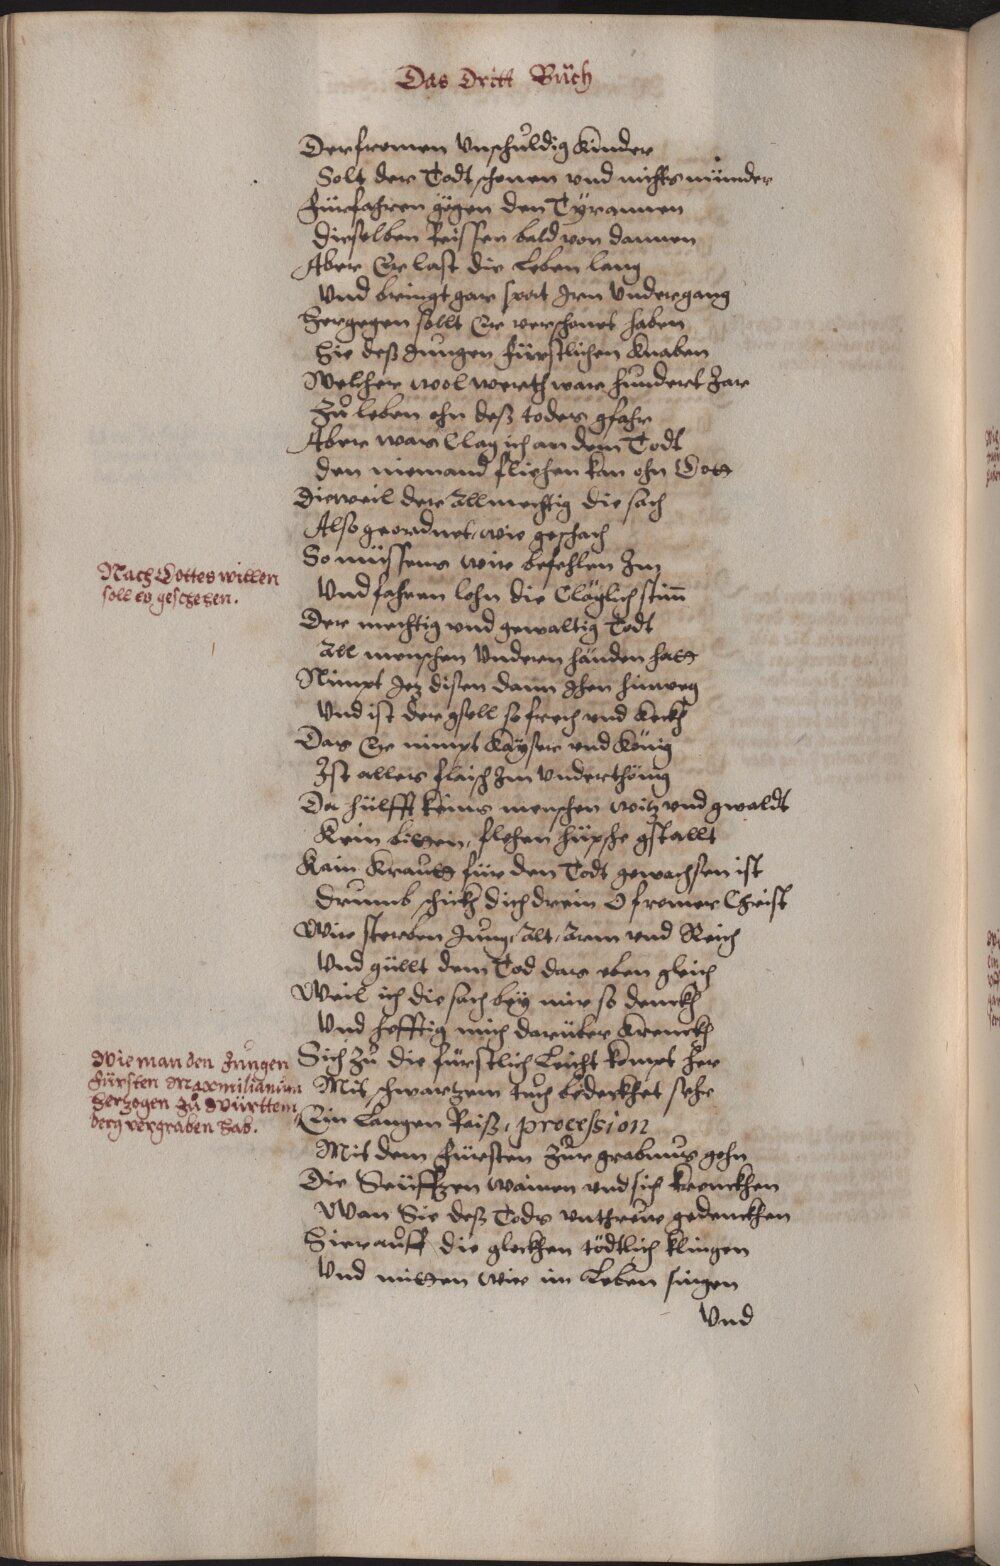 Das Dritt Büch
Der fromen Unschuldig Kinder
Solt der Todt schonen und nichts münder
Fürfahren gögen den Tÿrannen
Dieselben Reissen bald von dannen
Aber Er last die Leben lang
Und bringt gar spat Irn Undergang
Hergegen sollt Er verschonet haben
Hie deß Jungen Fürstlichen Knaben
Welcher wol werth ware hundert Jar
Zů leben ohn deß todes gfahr
Aber was Clag ich an dem Todt
den niemand fliehen kan ohn Gott
Dieweil der Allmechtig die sach
Also geordnet, wie geschach
So müssens wir befehlen Im
Und fahren lohn die Cläglich stim̄
Der mechtig und gewaltig Todt
All menschen Undern händen hatt
Nimpt Jez disen dann Jhen hinweg
Und ist der gsell so frech und Keckh
Das Er nimpt Kaÿser und König
Ist alles flaisch Im Underthönig
Da hülfft keins menschen witz und gwaldt
Kein bitten, flehen hüpsche gstallt
Kain Krautt für den Todt gewachsen ist
drumb schickh dich drein O fromer Christ
Wir sterben Jung, Alt, Arm und Reich
Und güllt dem Tod das eben gleich
Weil ich die sach beÿ mir so denckh
Und hefftig mich darüber Krenckh
Sich Zů die fürstlich Leicht kompt her
Mit schwartzem tuch bedeckhet sehr
Ein Langen Raiß, procession
Mit dem Fürsten Zůr grabnus gohn
Die Seüffzen wainen und sich krenckhen
Wan Sie deß Tods untrew gedenckhen
Hierauff die glockhen tödtlich klingen
Und mitten wir im Leben singen
Und
Nach Gottes willen
soll es geschehen.
Wie man den Jungen
Fürsten Maxmilianum
Hertzogen Zů Württem
berg vergraben hab.